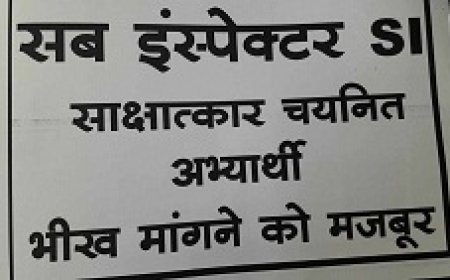 सब इंस्पेक्टर SI
साक्षात्कार चयनित
अभ्यार्थी
भीख मांगने को मजबूर